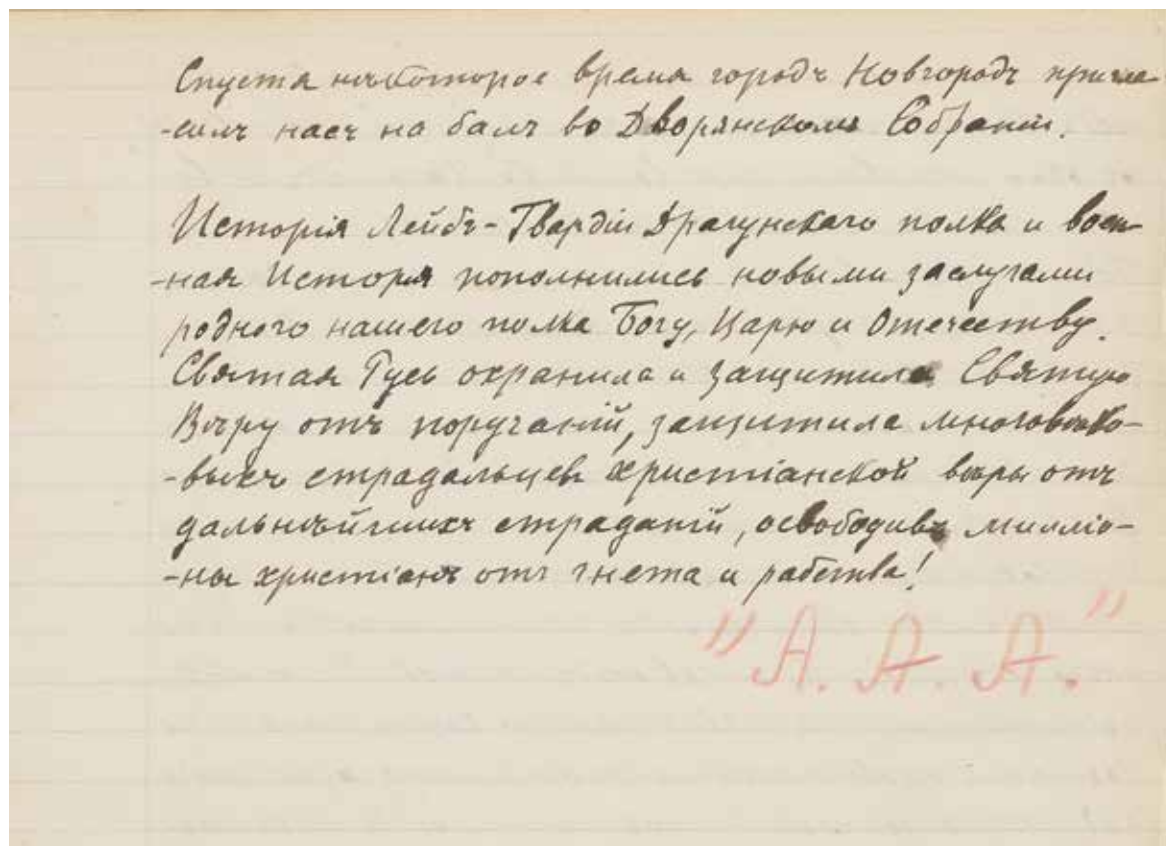 Спустя нѣкоторое время городъ Новгородъ пригла-
-силъ насъ на балъ во Дворянскомъ Собраніи.
Исторія Лейбъ-Гвардіи Драгунскаго полка и воен-
-ная Исторія пополнились новыми заслугами
родного нашего полка Богу, Царю и Отечеству.
Святая Русь охранила и защитила Святую
Вѣру отъ поруганій, защитила многовѣко-
-выхъ страдальцевъ христіанской вѣры отъ
дальнѣйшихъ страданій, освободивъ милліо-
-ны христіанъ отъ гнета и рабства!
"А. А. А."